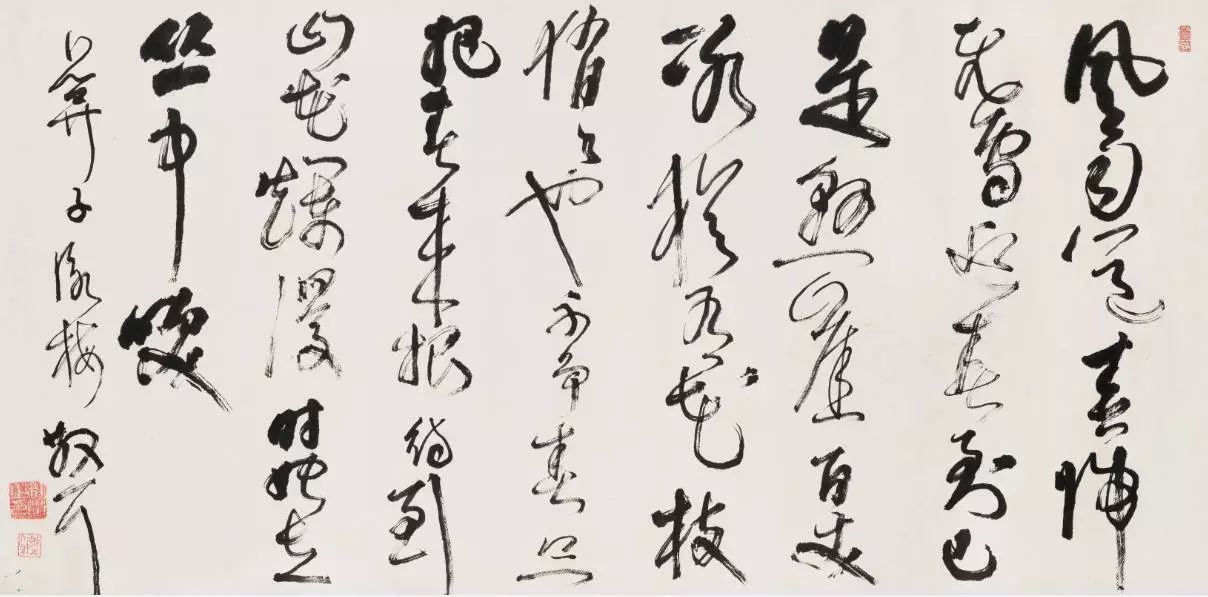 风雨送春归
飛雪迎春到已
是悬崖百丈
冰猶有花枝
俏〻也不争春只
把春来报待到
山花爛漫时她在
丛中咲
卜算子咏梅